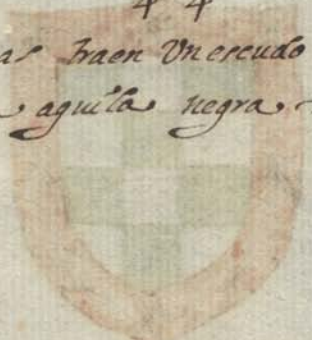 traen Vn escudo
aguila negra